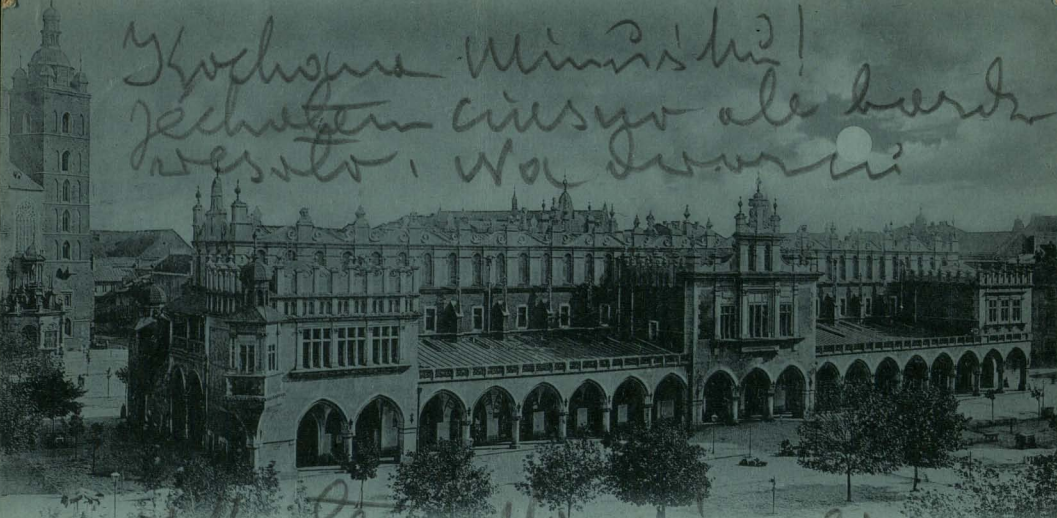 Kochana Minuśku!
Jechałem ciasno ale bardz
wesoło, Na dworcu